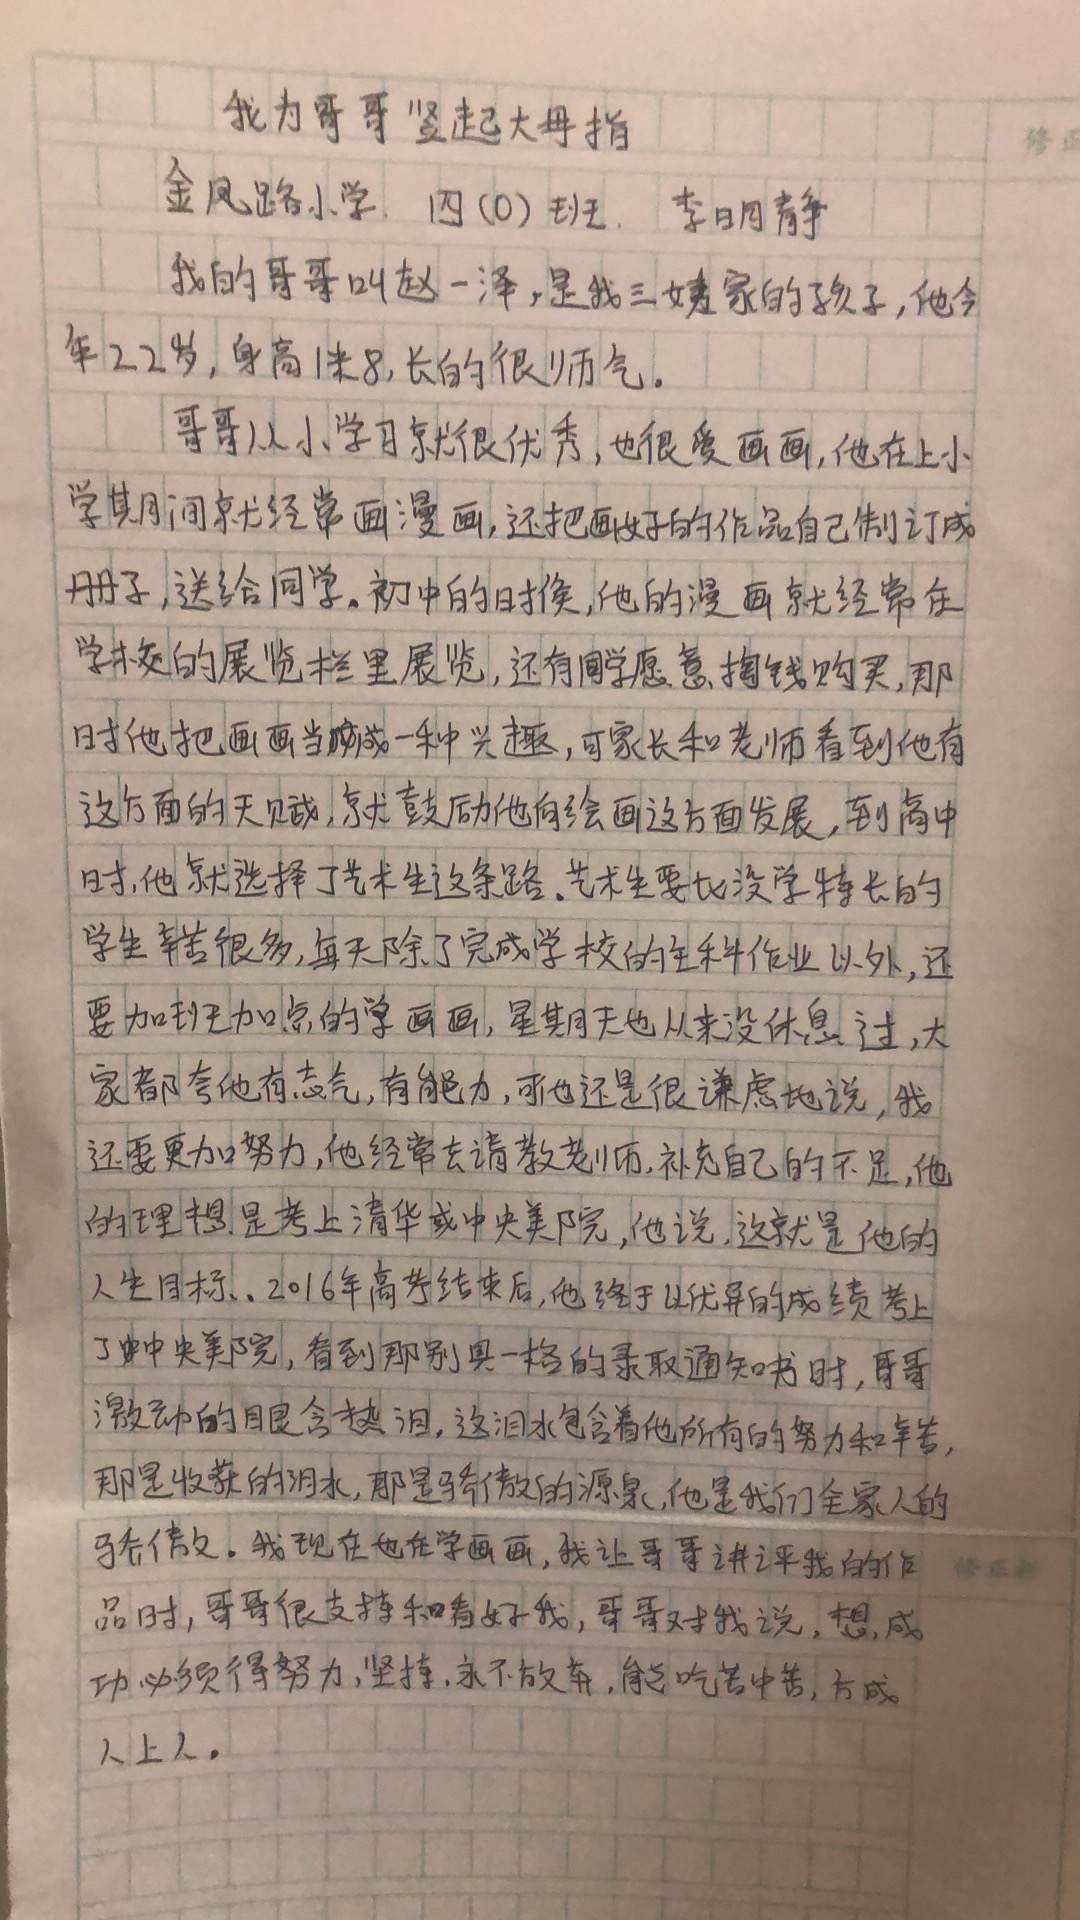 我为哥哥竖起大母指
金凤路小学. 四(0)班. 李明静
我的哥哥叫赵一泽,是我三姨家的孩子,他今
年22岁,身高1米8,长的很师气。
哥哥从小学习就很优秀,也很爱画画,他在上小
学期间就经常画漫画,还把画好的作品自己制订成
册子,送给同学。初中的时候,他的漫画就经常在
学校的展览栏里展览,还有同学愿意掏钱购买,那
时他把画画当成一种兴趣,可家长和老师看到他有
这方面的天赋,就鼓励他向绘画这方面发展,到高中
时,他就选择了艺术生这条路。艺术生要比没学特长的
学生辛苦很多,每天除了完成学校的主科作业以外,还
要加班加点的学画画,星期天也从来没休息过,大
家都夸他有志气,有能力,可他还是很谦虑地说,我
还要更加努力,他经常去请教老师,补充自己的不足,他
的理想是考上清华或中央美院,他说,这就是他的
人生目标.。2016年高考结束后,他终于以优异的成绩考上
了中央美院,看到那别具一格的录取通知书时,哥哥
激动的眼含热泪,这泪水包含着他所有的努力和辛苦,
那是收获的泪水,那是骄傲的源泉,他是我们全家人的
骄傲。我现在也在学画画,我让哥哥讲评我的作
品时,哥哥很支持和看好我,哥哥对我说,想成
功必须得努力,坚持,永不放弃,能吃苦中苦,方成
人上人。
修正
修正栏